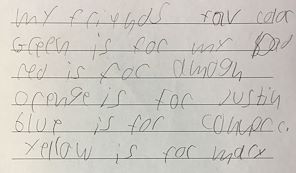 my friends fav color
Green is for my Dad
red is for amogh
orenge is for Justin
blue is for
yellow is for marx